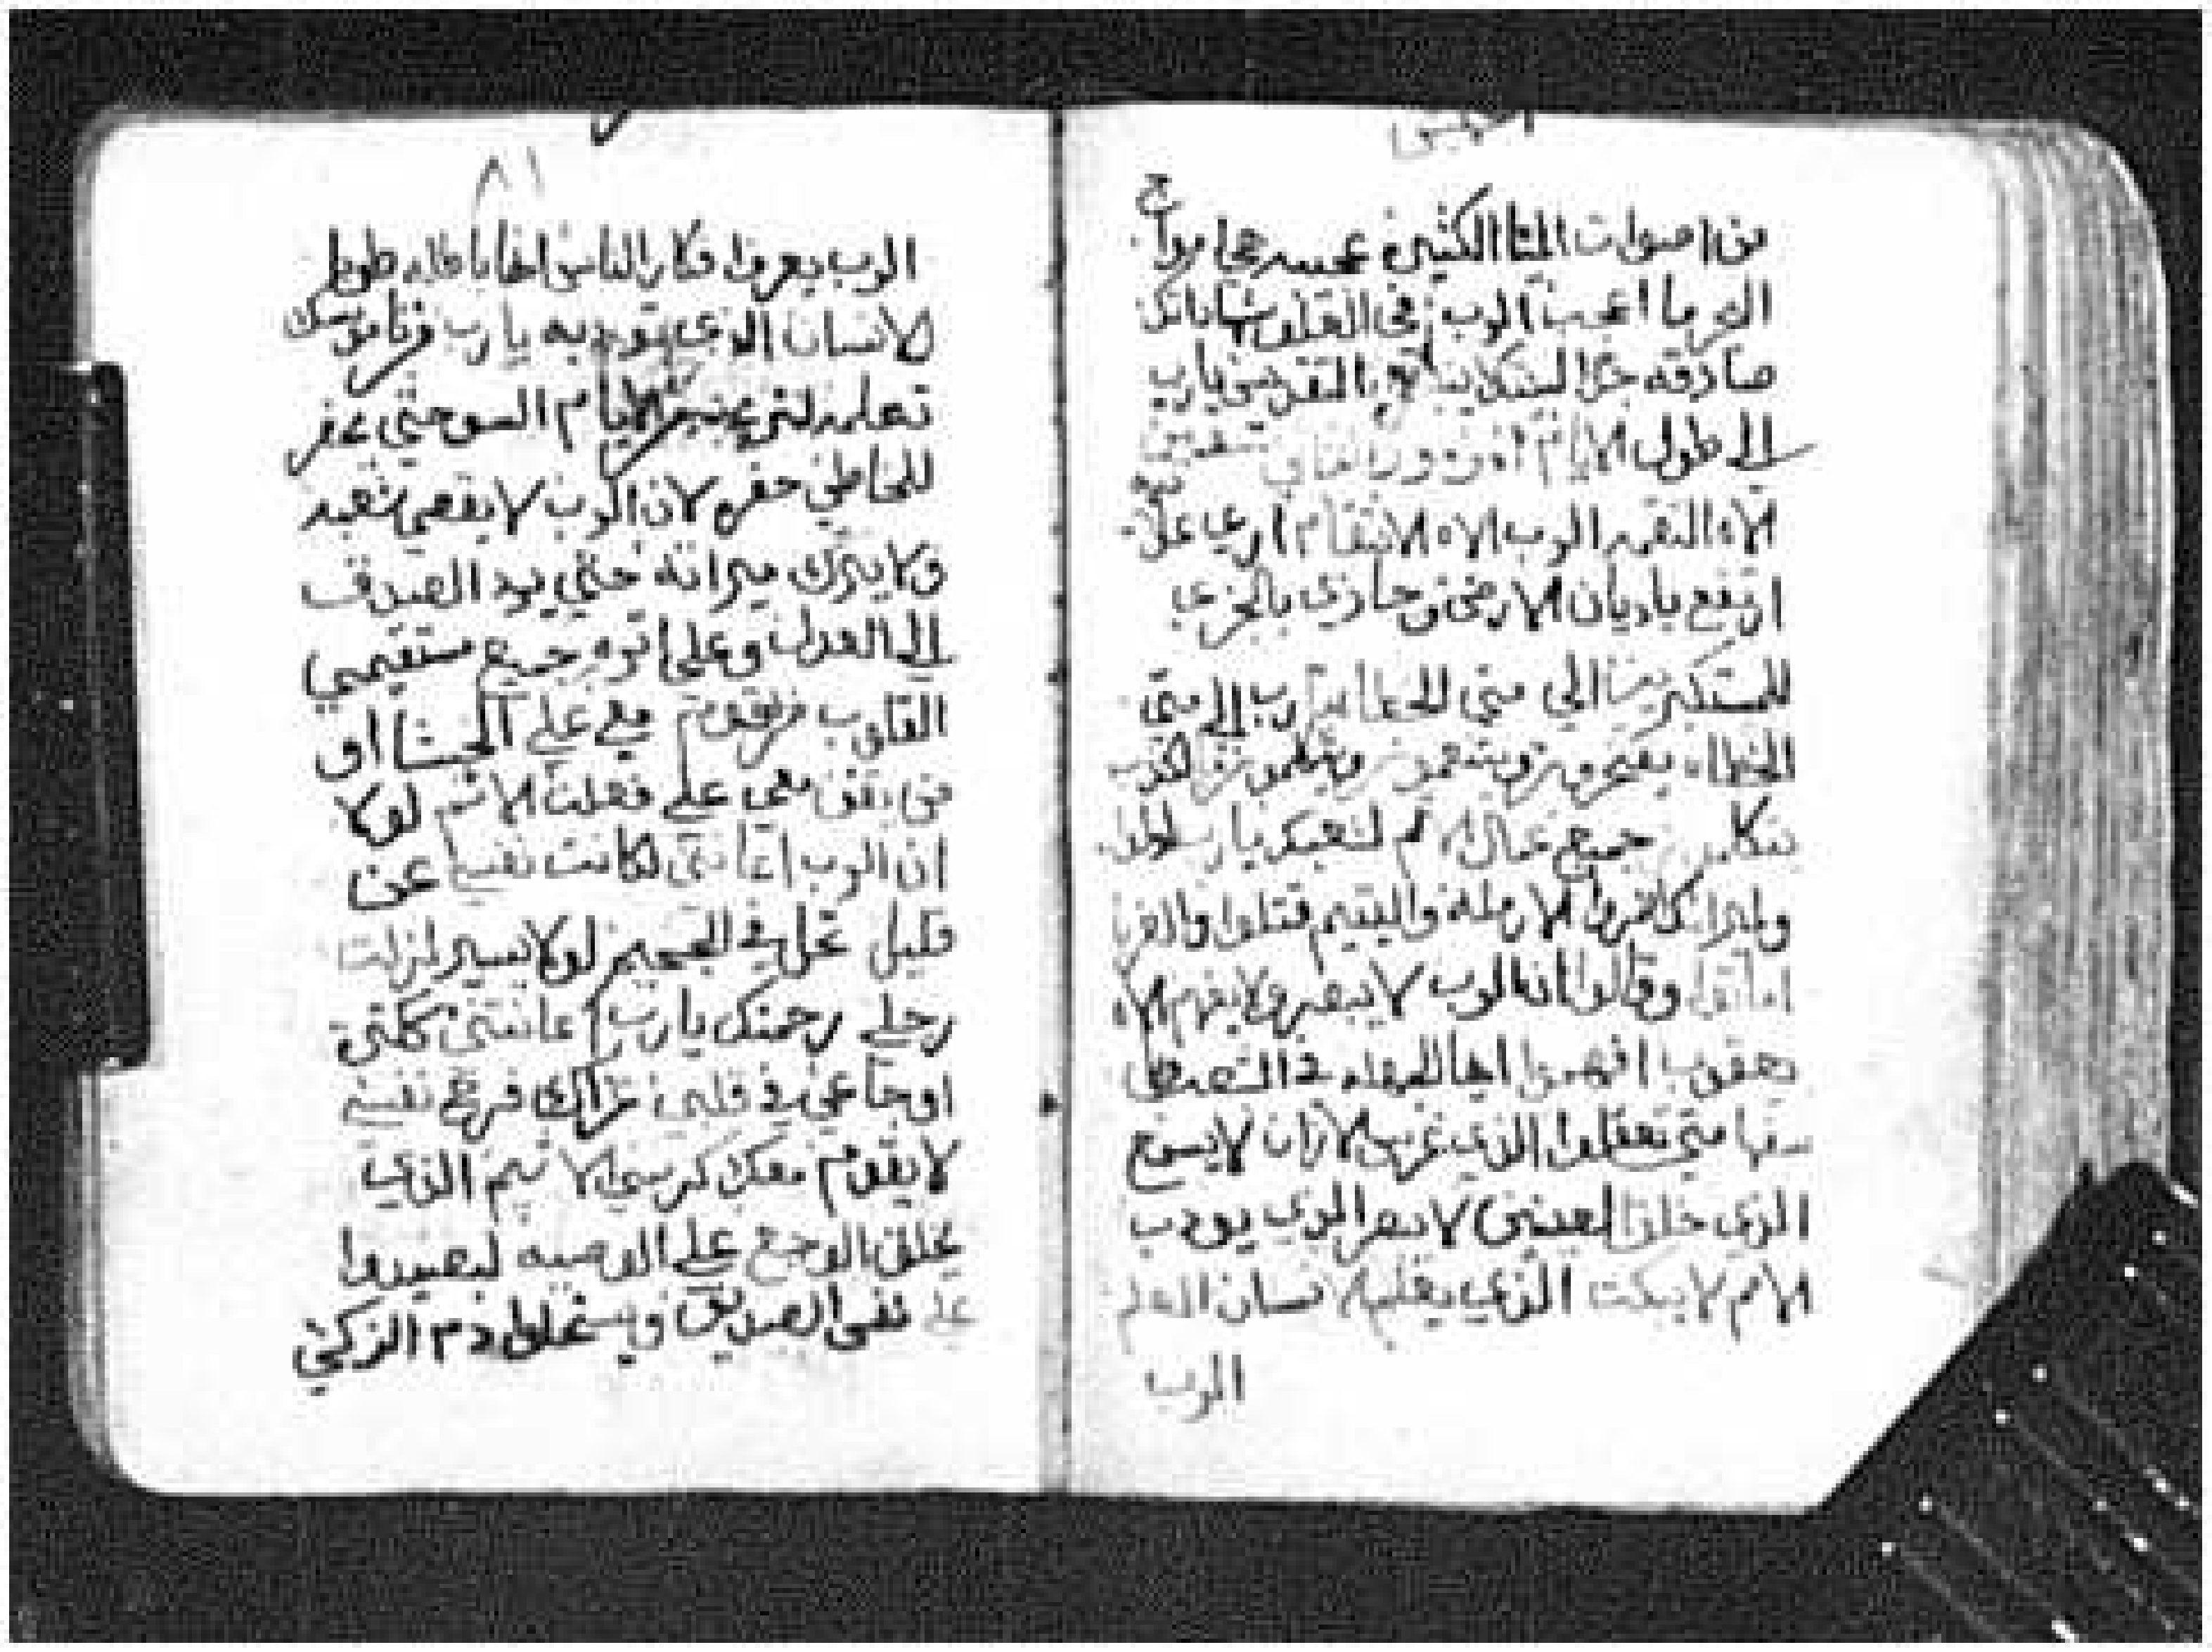 من اصوات الميا الكثيره عجيبه هي امواج
البحر ما اعجب الرب في العلا شهاداتك
صادقه جدا لبيتك ينبغي التقديس يارب
الى طول الايام
الاه النقمه الرب الاه الانتقام
ارتفع ياديان الارض وجازي بالخزي
للمستكبرين الي متي الخطاه يارب الى متى
الخطاه يفتخرون ويتكلمون بالكذب
جميع عمال الاثم لشعبك يارب اذلوا
وميراتك اضروا الارمله واليتيم قتلوا والغربا
اماتوا وقالوا ان الرب لا يبصر ولا يفهم الاه
يعقوب افهموا ايها الجهله في الشعب
متى تعقلوا الذي غرس الاذان لا يسمع
الذي خلق العينين لا يبصر الذي يودب
الامم لا يبكت الذي يعلم الانسان العلم
الرب
٨١
الرب يعرف افكار الناس انها باطله طوبا
للانسان الذي تودبه يارب ومن ناموسك
تعلمه لتريحه من الايام السو حتي يحفر
للخاطي حفره لان الرب لا يقصي شعبه
ولا يترك ميراثه حتي يرد الصدق
الى العدل وعلى اثره جميع مستقيمي
القلوب من يقوم معي علي الخبثا او
من يقف معي علي فعلت الاثم لولا
ان الرب اعانني لكانت نفسي عن
قليل تحل في الجحيم لولا يسير لزلت
رجلي رحمتك يارب اعانتني ككثرت
اوجاعي في قلبي عزاك فرح نفسي
لا يقوم معك كرسي الاثم الذي
يخلق الوجع علي الوصيه ليصيدوا
علي نفس الصديق ويستحلوا دم الزكي